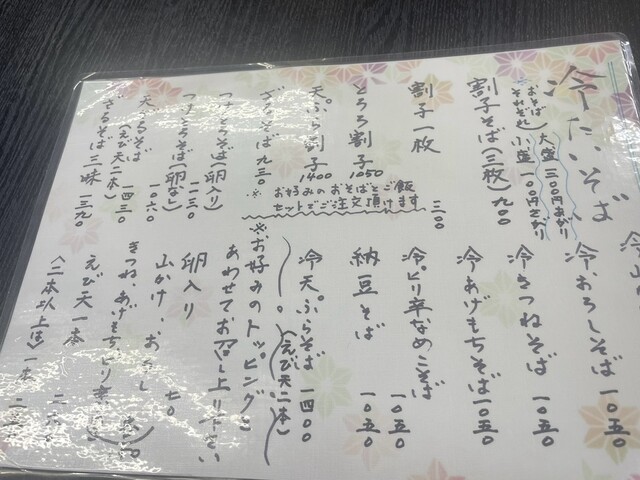 冷たいそば
おそば
それぞれ
大盛 三〇〇円あがり
小盛 一〇〇円さがり
割子そば(三枚) 九〇〇
割子一枚 三〇〇
とろろ割子 1050
天ぷら割子 1400
ざるそば 九三〇
※お好みのおそばとご飯
セットでご注文頂けます
つけとろそば(卵入り) 一二三〇
つけとろそば(卵なし) 一一六〇
天ざるそば
(えび天二本) 一四三〇
ざるそば三味 一三九〇
冷おろしそば 一〇五〇
冷きつねそば 一〇五〇
冷あげもちそば 一〇五〇
冷ピリ辛なめこそば 一〇五〇
納豆そば 一〇五〇
冷天ぷらそば 一四〇〇
(えび天二本)
※お好みのトッピングを
あわせてお召し上り下さい
卵入り
山かけ、おろし 七〇
きつね、あげもち、ピリ辛
えび天一本
(二本以上は)一本